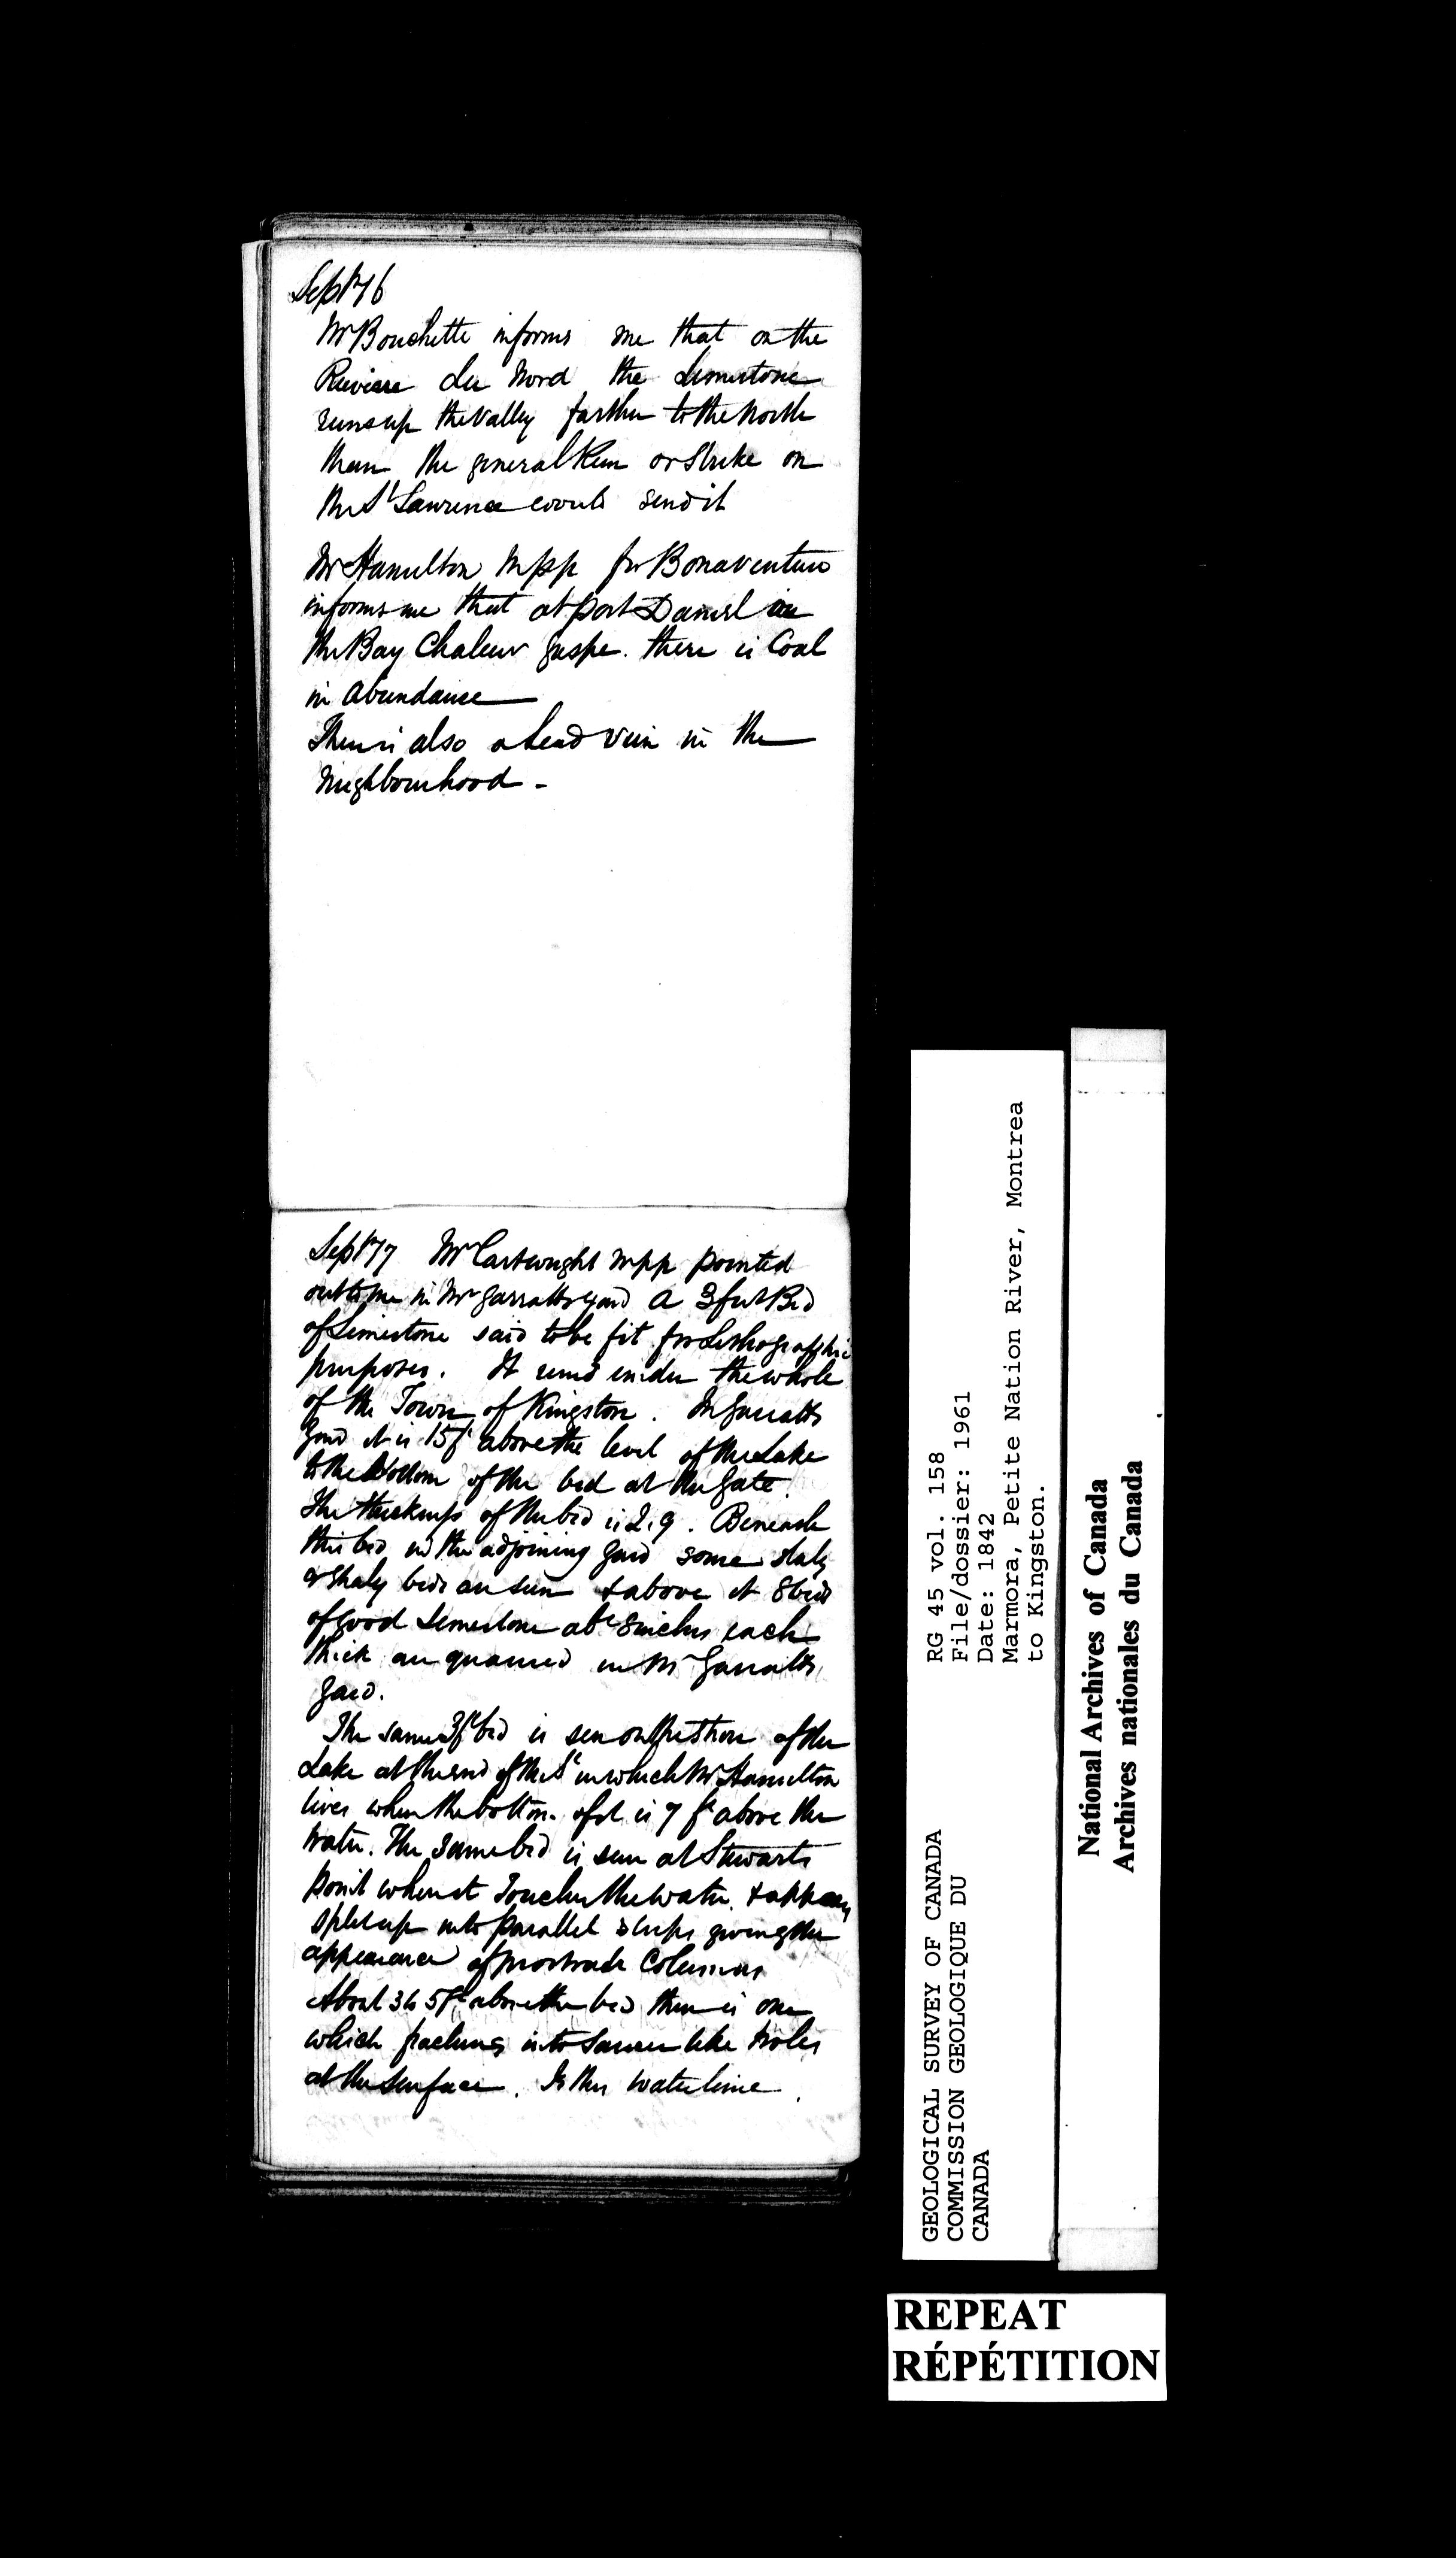 Septr 16
Mr Bouchette informs me that on the
Riviere du Nord the Limestone
runs up the Valley farther to the North
than the general Run or Strike on
the St Lawrence would send it
Mr Hamilton Mpp for Bonaventure
informs me that at port Daniel in
the Bay Chaleur Gaspe. there is Coal
in abundance
There is also a Lead vein in the
Neighbourhood -
Septr 17 Mr Cartwright Mpp pointed
out to me in Mr Garratts yard a 3 feet Bed
of Limestone said to be fit for Lithographic
purposes. It runs under the whole
of the Town of Kingston. In Garratts
yard it is 15ft above the level of the Lake
to the Bottom of the bed at the Gate.
The thickness of the bed is 2.9. Beneath
this bed in the adjoining yard some slaty
or Shaly beds are seen & above it 8 beds
of good Limestone abt 8 inches each
thick are quarried in Mr Garratts
yard.
The same 3ft bed is seen on the shore of the
Lake at the end of the St in which Mr Hamilton
lives when the bottom of it is 7 ft above the
water. The same bed is seen at Stewarts
point where it Touches the water. & appears
split up into parallel strips giving the
appearance of prostrate Columns
About 3 to 5ft above the bed there is one
which fractures into saucer like holes
at the surface. Is this water lime.
RG 45 vol. 158
File/dossier: 1961
Date: 1842
Marmora, Petite Nation River, Montrea
to Kingston.
GEOLOGICAL SURVEY OF CANADA
COMMISSION GEOLOGIQUE DU
CANADA
National Archives of Canada
Archives nationales du Canada
REPEAT
RÉPÉTITION